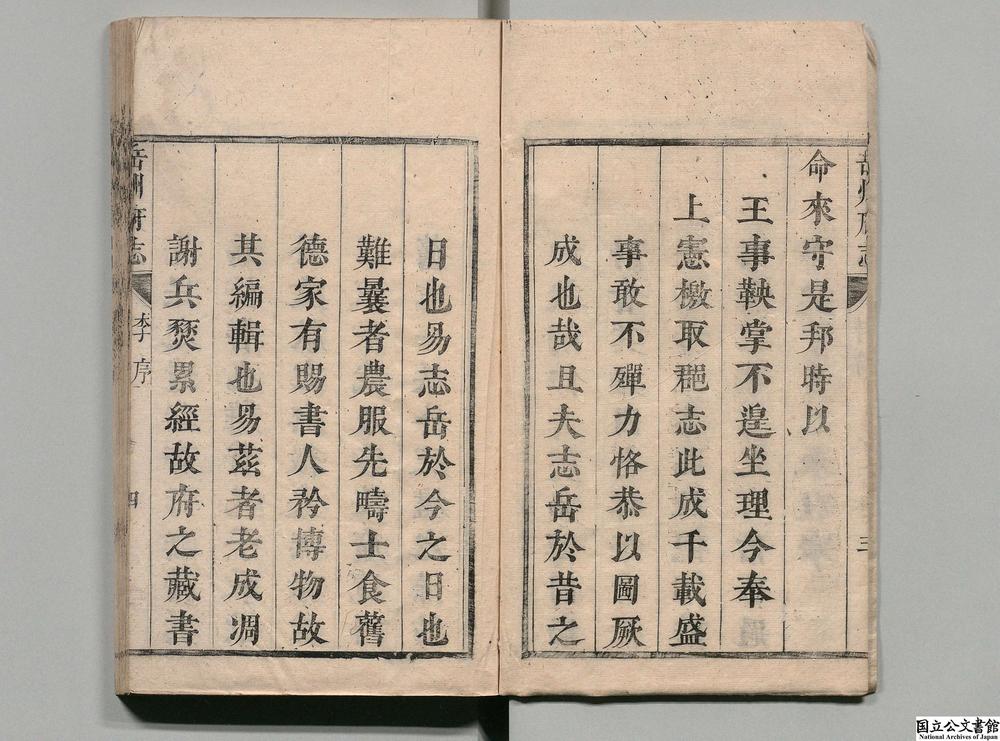 岳州府志
三
命來守是邦時以
王事鞅掌不遑坐理今奉
上憲檄取郡志此成千載盛
事敢不殫力恪恭以圖厥
成也哉且夫志岳於昔之
日也易志岳於今之日也
難曩者農服先疇士食舊
德家有賜書人矜博物故
其編輯也易茲者老成凋
謝兵燹累經故府之藏書
岳州府志
李序
四
国立公文書館
National Archives of Japan